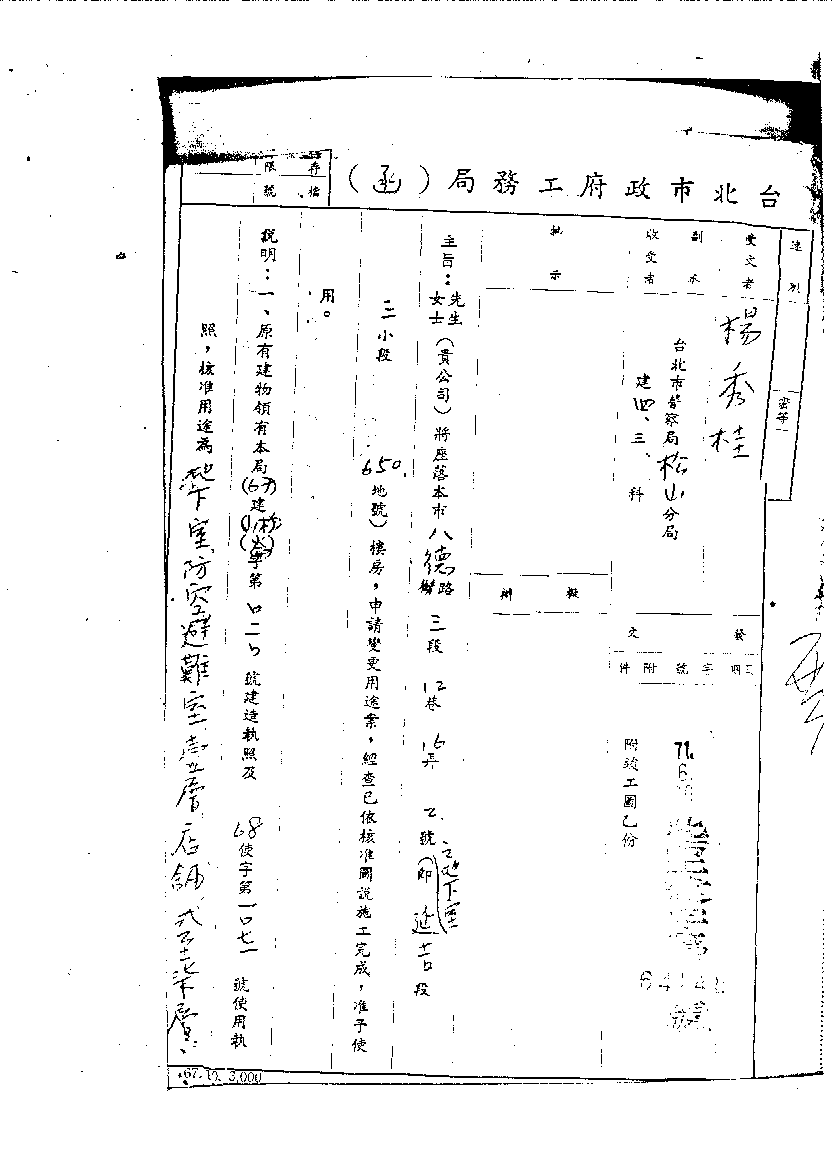 台北市政府工務局（函）
存檔
限號
速別
密等
受文者
楊秀桂
副本
收受者
台北市警察局松山分局
建四、三、科
批示
擬辦
發文
字號
附件
71.6.
附竣工圖乙份
主旨：先生女士（貴公司）將座落本市八德路三段12巷16弄2號之地下室（即延吉段
三小段650地號）樓房，申請變更用途案，經查已依核准圖說施工完成，准予使
用。
說明：一、原有建物領有本局(67)建(松山)字第 號建造執照及68使字第一0七一號使用執
照，核准用途為地下室防空避難室壹層店舖 柒層、
67. 10. 3,000